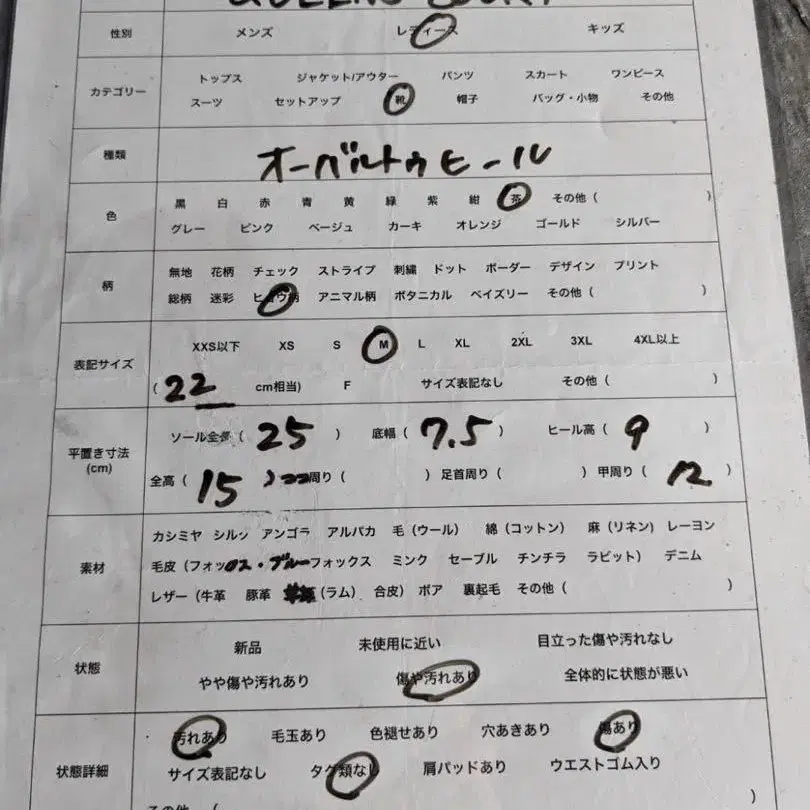 QUEENS COURT
性別 メンズ レディース キッズ
カテゴリー
トップス ジャケット/アウター パンツ スカート ワンピース
スーツ セットアップ 靴 帽子 バッグ・小物 その他
種類 オーバルトゥヒール
色
黒 白 赤 青 黄 緑 紫 紺 茶 その他 ( )
グレー ピンク ベージュ カーキ オレンジ ゴールド シルバー
柄
無地 花柄 チェック ストライプ 刺繍 ドット ボーダー デザイン プリント
総柄 迷彩 ヒョウ柄 アニマル柄 ボタニカル ペイズリー その他 ( )
表記サイズ
XXS以下 XS S M L XL 2XL 3XL 4XL以上
( 22 cm相当) F サイズ表記なし その他 ( )
平置き寸法
(cm)
ソール全長 ( 25 ) 底幅 ( 7.5 ) ヒール高 ( 9 )
全高 ( 15 ) 周り ( ) 足首周り ( ) 甲周り ( 12 )
素材
カシミヤ シルク アンゴラ アルパカ 毛 (ウール) 綿 (コットン) 麻 (リネン) レーヨン
毛皮 (フォックス・ブルーフォックス ミンク セーブル チンチラ ラビット) デニム
レザー (牛革 豚革 (ラム) 合皮) ボア 裏起毛 その他 ( )
状態
新品 未使用に近い 目立った傷や汚れなし
やや傷や汚れあり 傷や汚れあり 全体的に状態が悪い
状態詳細
汚れあり 毛玉あり 色褪せあり 穴あきあり 傷あり
サイズ表記なし タグ類なし 肩パッドあり ウエストゴム入り
その他 ( )